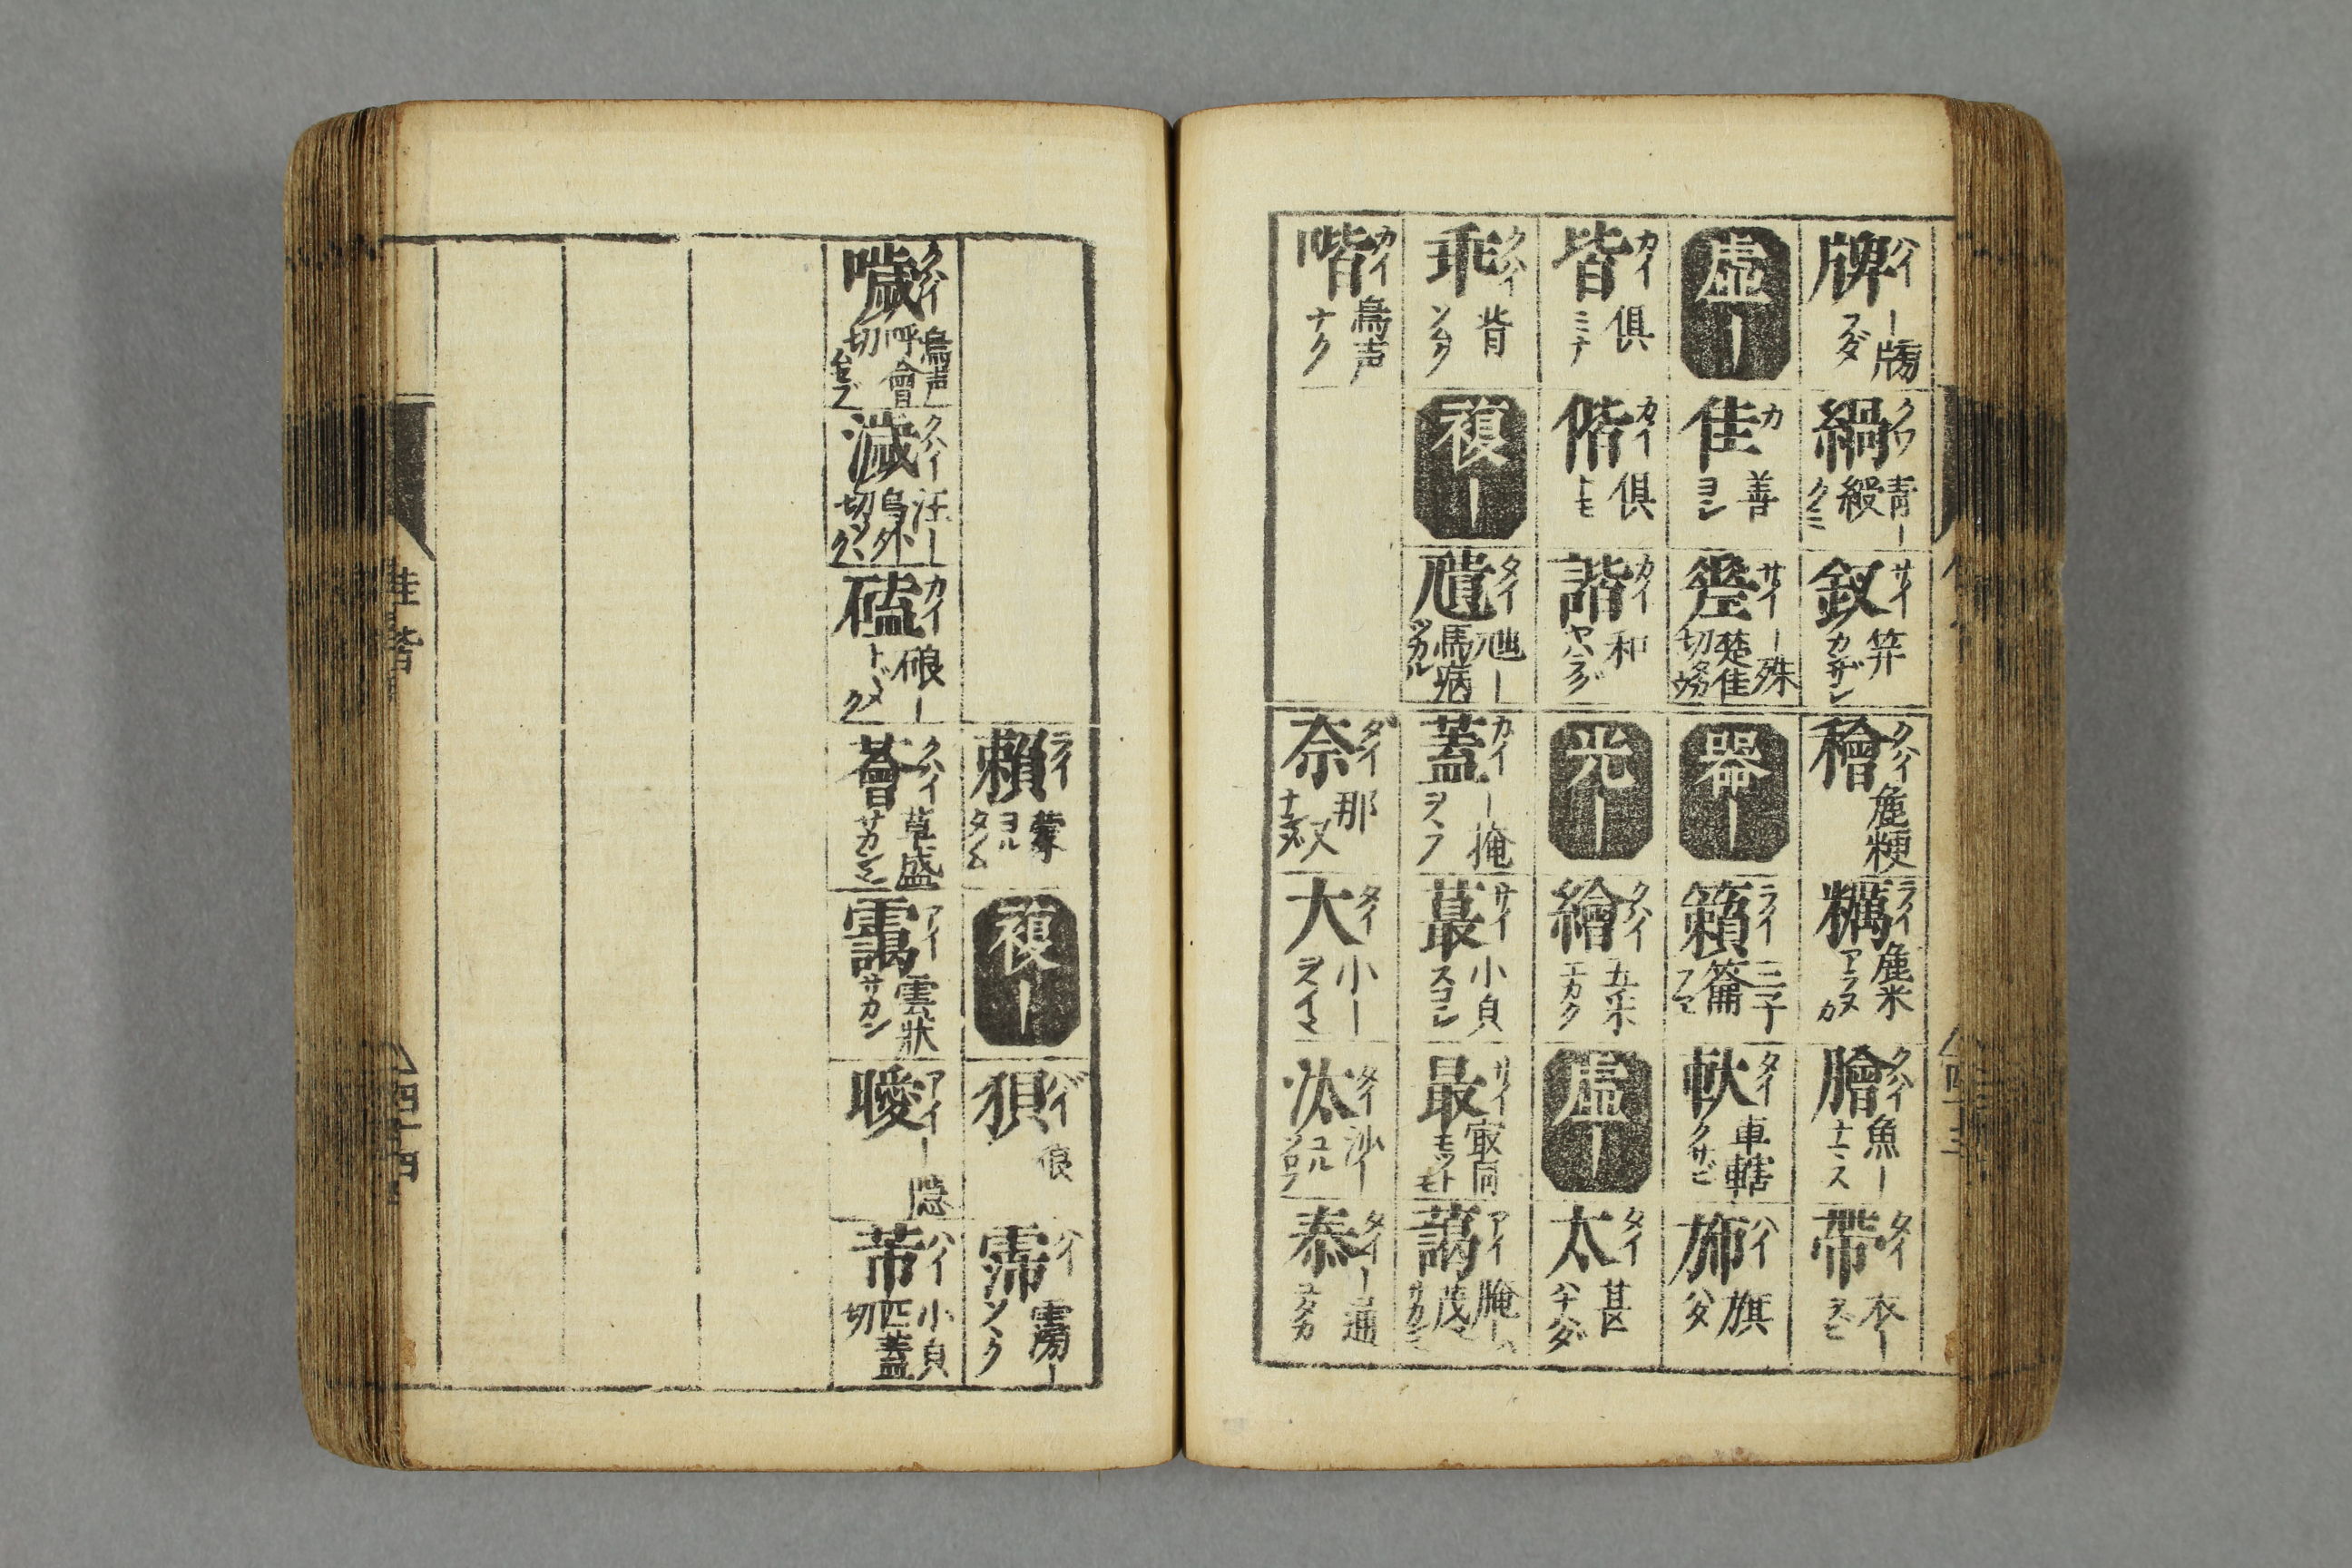 牌 ハイ ー牓 フダ 緺 クワ 青ー綬 クミ 釵 サイ 笄 カザシ
虛ー 佳 カ 善 ヨシ 𨒬 サイ ー殊 楚佳切
皆 カイ 俱 ミナ 偕 カイ 俱 トモ 諧 カイ 和 ヤハラグ
乖 クハイ 背 ソムク 複ー 尵 タイ 虺ー 馬病 ツカル
喈 カイ 鳥声 ナク
穭 クハイ 麁粳 糲 ライ 麁米 アラヌカ 膾 クハイ 魚ー ナマス 帶 タイ 衣ー ヲビ
器ー 籟 ライ 三孔籥 フエ 軑 タイ 車轄 クサビ 旆 ハイ 旗 ハタ
光ー 繪 クハイ 五采 エカク 虛ー 太 タイ 甚 ハナハダ
蓋 カイ ー掩 ヲヽフ 蕞 サイ 小皃 スコシ 最 サイ 冣同 モットモ 藹 アイ 晻ー 茂
奈 ダイ 那 大 タイ 小ー 汰 タイ 沙ー 泰 タイ ー通 ユタカ
賴 ライ 蒙 ヨル タノム 複ー 狽 バイ 狼 霈 ハイ 霶ー ソヽク
噦 クハイ 鳥声 呼會切 濊 クハイ 汪ー 烏外切 礚 カイ 硠ー トドメク
薈 クハイ 草盛 サカシ 靄 アイ 雲狀 サカン 曖 アイ ー隱 芾 ハイ 小皃 匹蓋切
佳皆
四十四